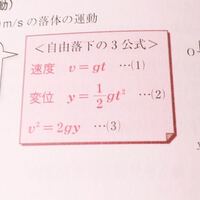 動)
m/sの落体の運動
<自由落下の3公式>
速度 v = gt …(1)
変位 y = 1/2 gt² …(2)
v² = 2gy …(3)
O